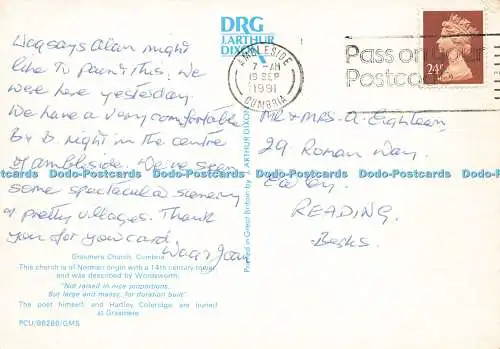 DRG
J. ARTHUR DIXON
AMBLESIDE
7 - AM
19 SEP
1991
CUMBRIA
Pass on your
Postcode
24P
says Alan might
like to paint this. We
were here yesterday
We have a very comfortable
B & B right in the centre
of Ambleside. We've seen
some spectacular scenery
& pretty villages. Thank
you for your card
Joan
Mr & Mrs. A. Eighteen,
29 Roman Way,
Earley,
READING,
Berks.
Printed in Great Britain by J. ARTHUR DIXON
Grasmere Church, Cumbria
This church is of Norman origin with a 14th century tower
and was described by Wordsworth:
"Not raised in nice proportions..
But large and massy, for duration built".
The poet himself and Hartley Coleridge are buried
at Grasmere
PCU/86286/GMS
Dodo-Postcards Dodo-Postcards Dodo-Postcards Dodo-Postcards